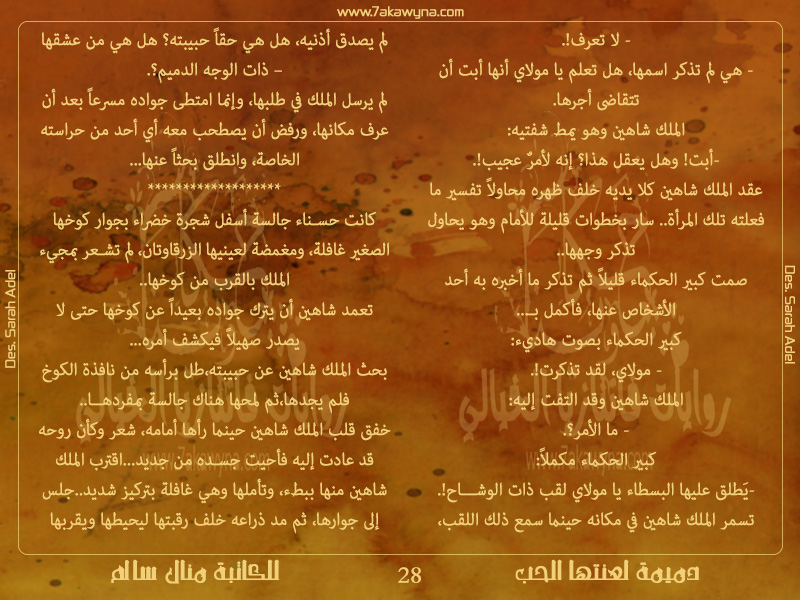 www.7akawyna.com
- لا تعرف!.
- هي لم تذكر اسمها، هل تعلم يا مولاي أنها أبت أن
تتقاضى أجرها.
الملك شاهين وهو يمط شفتيه:
-أبت! وهل يعقل هذا؟ إنه لأمرٌ عجيب!.
عقد الملك شاهين كلا يديه خلف ظهره محاولاً تفسير ما
فعلته تلك المرأة.. سار بخطوات قليلة للأمام وهو يحاول
تذكر وجهها..
صمت كبير الحكماء قليلاً ثم تذكر ما أخبره به أحد
الأشخاص عنها، فأكمل بـ..
كبير الحكماء بصوت هاديء:
- مولاي، لقد تذكرت!.
الملك شاهين وقد التفت إليه:
- ما الأمر؟.
كبير الحكماء مكملاً:
-يَطلق عليها البسطاء يا مولاي لقب ذات الوشـــاح!.
تسمر الملك شاهين في مكانه حينما سمع ذلك اللقب،
لم يصدق أذنيه، هل هي حقاً حبيبته؟ هل هي من عشقها
– ذات الوجه الدميم؟.
لم يرسل الملك في طلبها، وإنما امتطى جواده مسرعاً بعد أن
عرف مكانها، ورفض أن يصطحب معه أي أحد من حراسته
الخاصة، وانطلق بحثاً عنها...
*******************
كانت حسـناء جالسة أسفل شجرة خضراء بجوار كوخها
الصغير غافلة، ومغمضة لعينيها الزرقاوتان، لم تشـعر بمجيء
الملك بالقرب من كوخها..
تعمد شاهين أن يترك جواده بعيداً عن كوخها حتى لا
يصدر صهيلاً فيكشف أمره...
بحث الملك شاهين عن حبيبته،طل برأسه من نافذة الكوخ
فلم يجدها،ثم لمحها هناك جالسة بمفردهــا..
خفق قلب الملك شاهين حينما رأها أمامه، شعر وكأن روحه
قد عادت إليه فأحيت جسـده من جديد...اقترب الملك
شاهين منها ببطء، وتأملها وهي غافلة بتركيز شديد..جلس
إلى جوارها، ثم مد ذراعه خلف رقبتها ليحيطها ويقربها
Des. Sarah Adel
Des. Sarah Adel
روايات فانتازيا الخيالي
www.7akawyna.com
دميمة لعنتها الحب
28
للكاتبة منال سالم